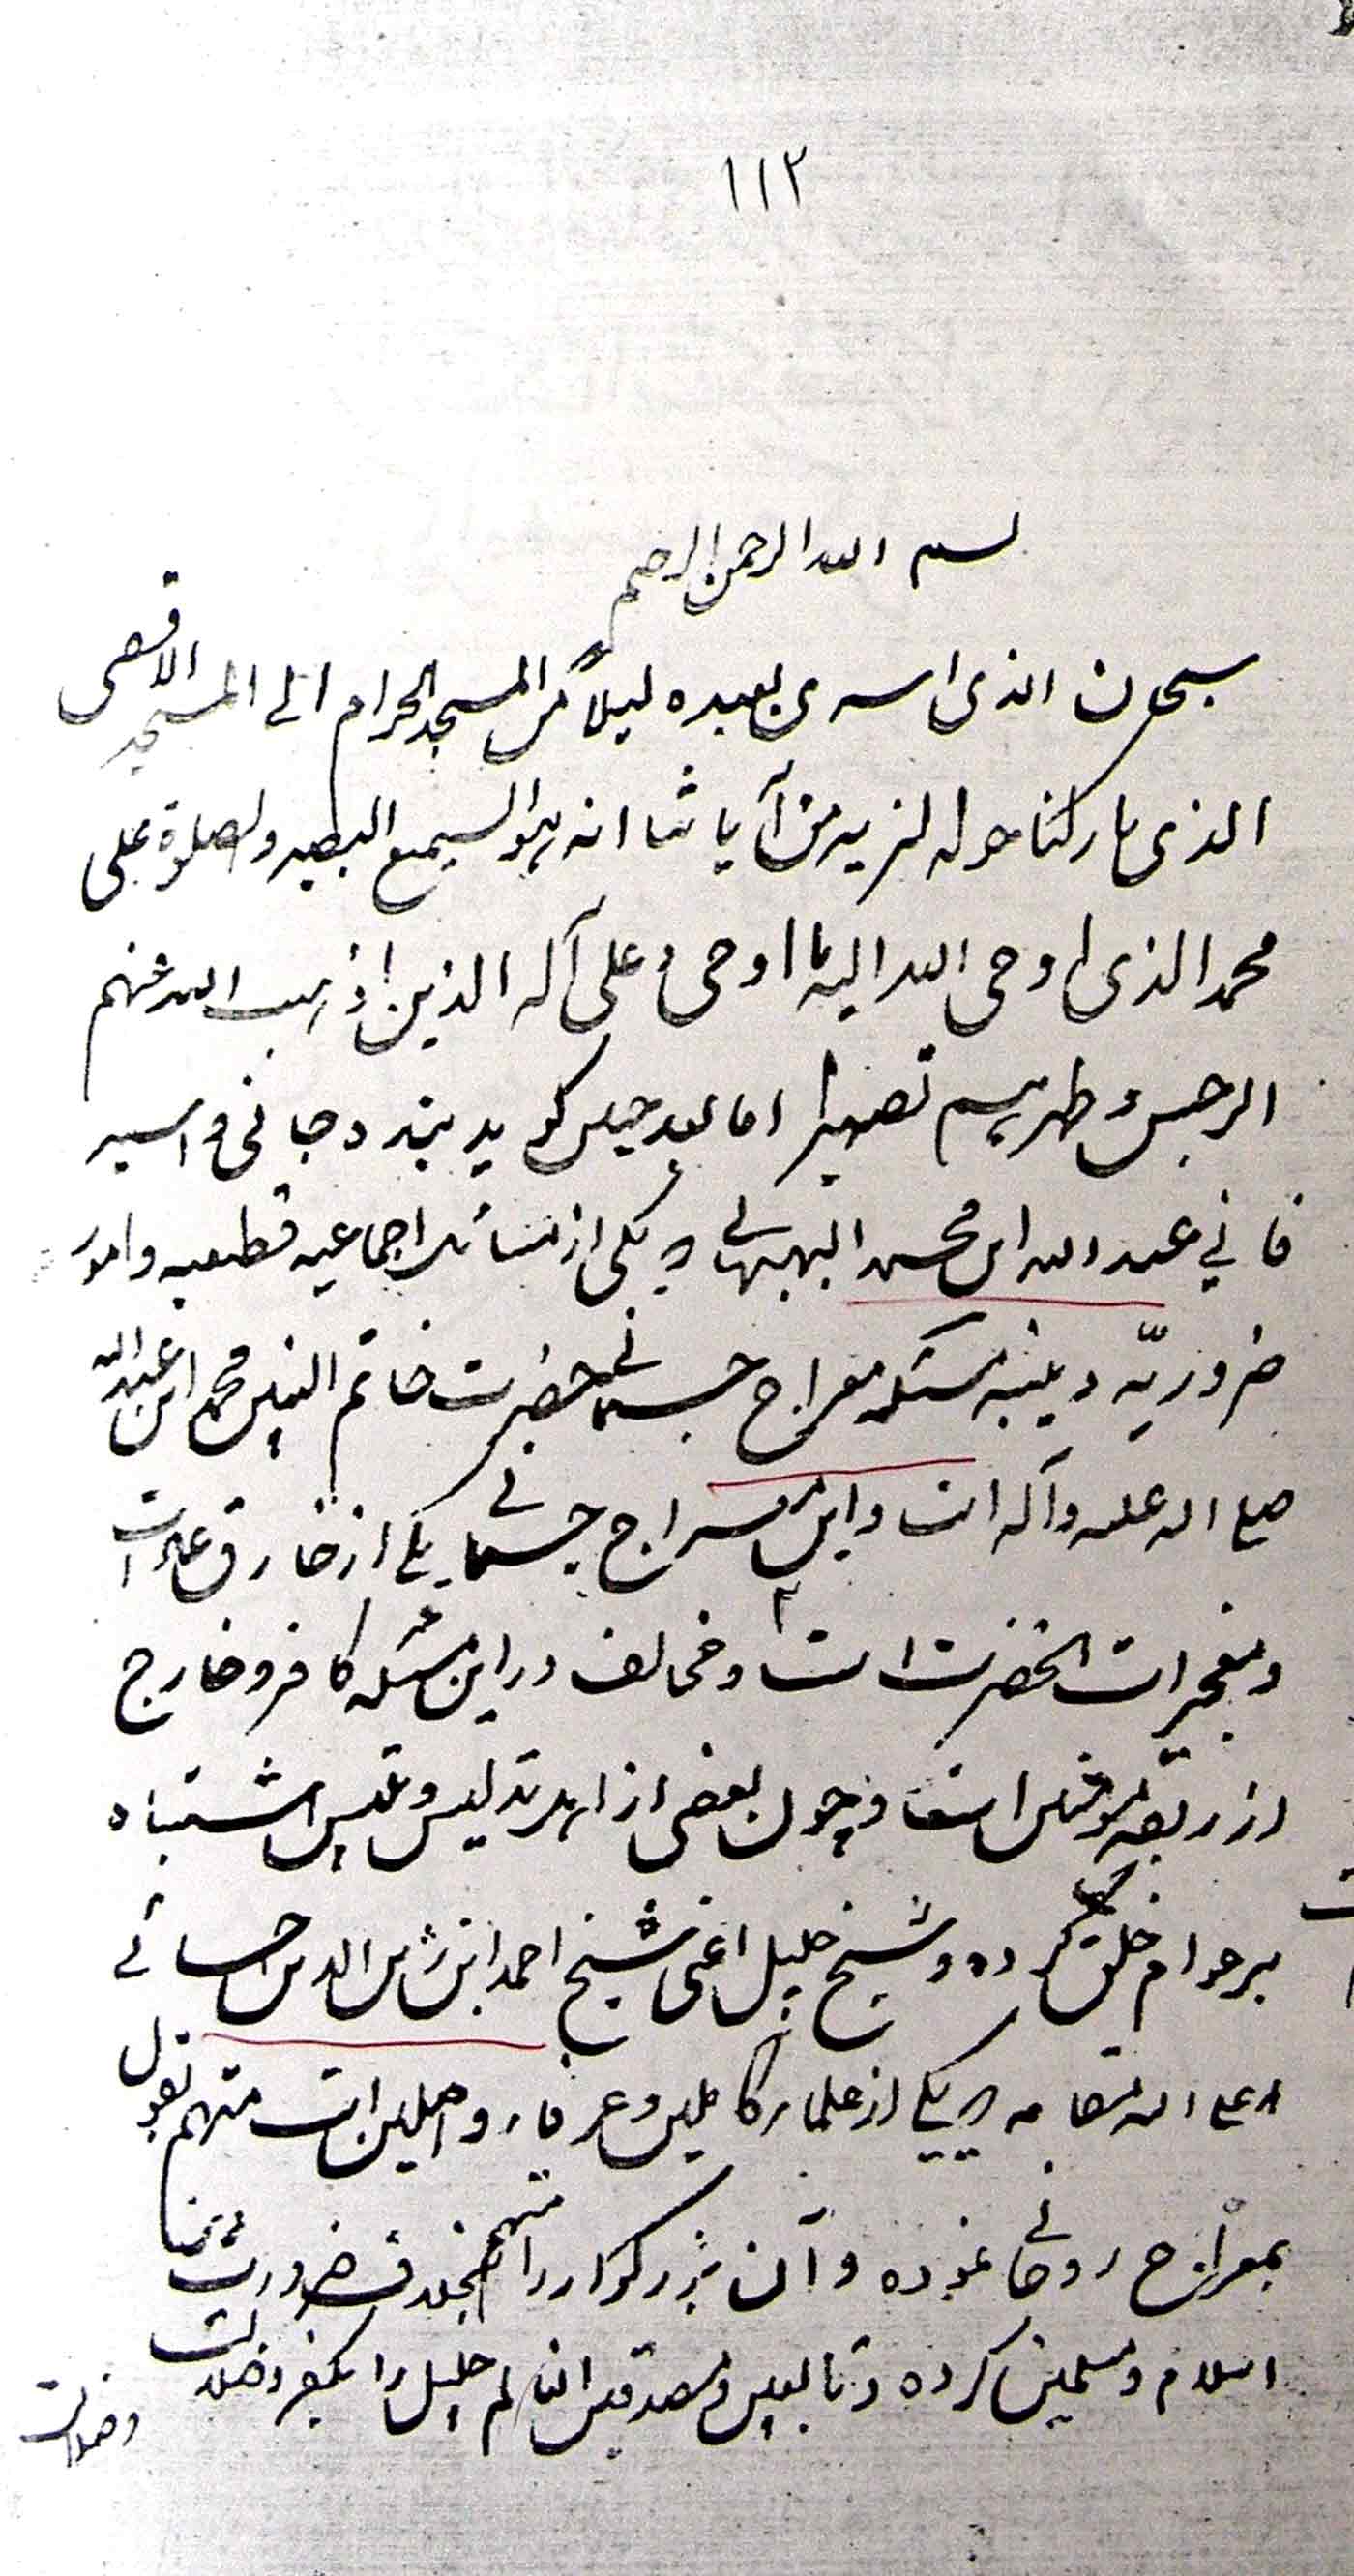 ۱۱۲
بسم الله الرحمن الرحیم
سبحان الذی اسری بعبده لیلاً من المسجد الحرام الی المسجد الاقصی
الذی بارکنا حوله لنریه من آیاتنا انه هو السمیع البصیر والصلوة علی
محمد الذی اوحی الله الیه ما اوحی و علی آله الذین اذهب الله عنهم
الرجس و طهرهم تطهیرا اما بعد چنین کوید بنده جانی و اسیر
فانی عبدالله ابن محمد البهبهانی که یکی از مسائل اجماعیه قطعیه و امور
ضروریّه دینیه مسئله معراج جسمانی حضرت خاتم النبیین محمد ابن عبدالله
صلی الله علیه وآله است و این معراج جسمانی یکی از خارق عادات
و معجزات انحضرت است و مخالف در این مسئله کافر و خارج
از ربقه مؤمنین است و چون بعضی از اهل تدلیس و تلبیس اشتباه
بر عوام خلق کرده و شیخ جلیل اعنی شیخ احمد ابن زین الدین احسائی
اعلی الله مقامه که یکی از علماء کاملین و عرفاء واصلین است متهم بقول
بمعراج روحانی نموده و آن بزرکوار را متهم بخلاف ضرورت
اسلام و مسلمین کرده و تابعین و مصدقین ان عالم جلیل را بکفر و ضلالت
وضلالت